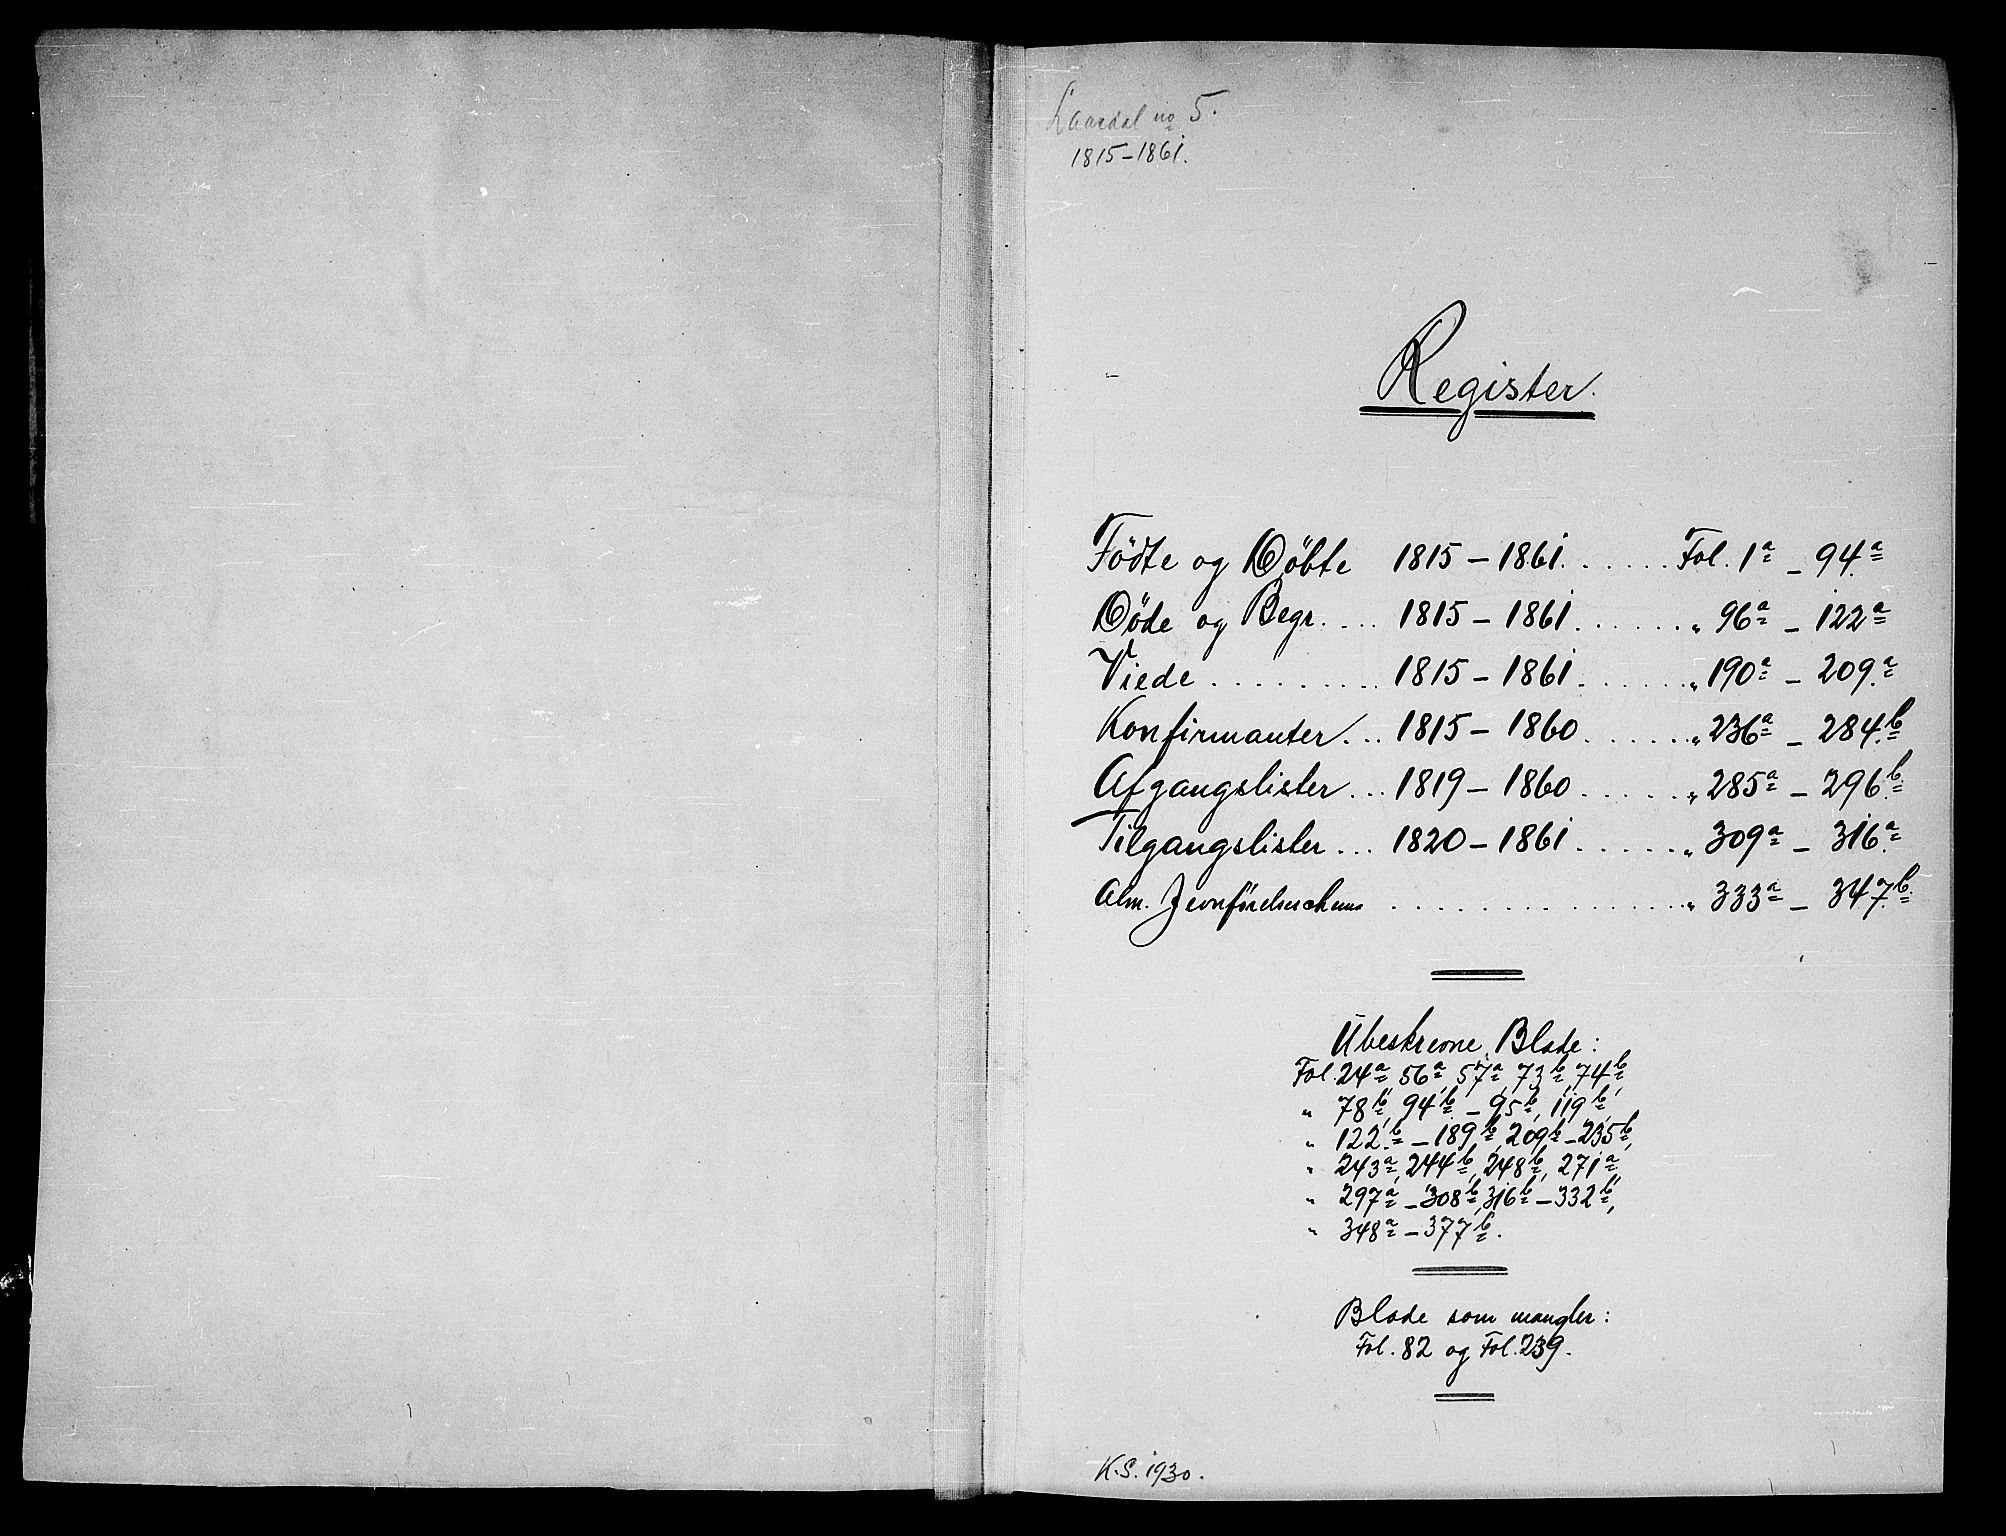 Laardal no 5.
1815-1861.
Register.
Födte og Döbte 1815 - 1861. . . . . . Fol. 1a - 94a
Döde og Begr. . . . 1815 - 1861. . . . . . „ 96a - 122a
Viede . . . . . . . . . 1815 - 1861. . . . . . „ 190a - 209a
Konfirmanter. . . 1815 - 1860. . . . . . „ 236a - 284b
Afgangslister . . . 1819 - 1860 . . . . . „ 285a - 296b
Tilgangslister . . . 1820 - 1861 . . . . . „ 309a - 316a
Alm. Jevnförelser . . . . . . . . . . . „ 333a - 347b
Ubeskrevne Blade:
Fol. 24a, 56a, 57a, 73b, 74b,
„ 78b, 94b - 95b, 119b,
„ 122b - 189b, 209b - 235b,
„ 243a, 244b, 248b, 271a,
„ 297a - 308b, 316b - 332b,
„ 348a - 377b.
Blade som mangler:
Fol. 82 og Fol. 239.
K.S. 1930.